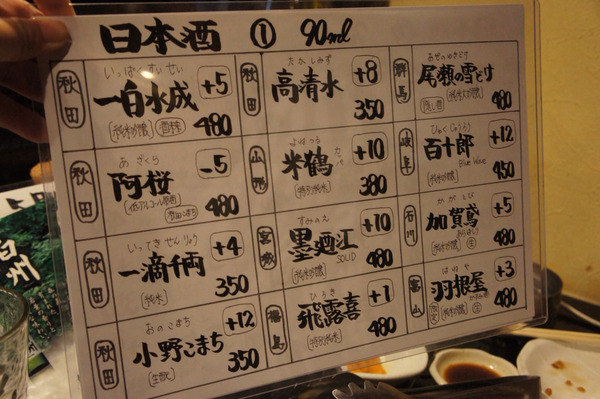 日本酒 ① 90ml
秋田
いっぱくすいせい
一白水成
+5
純米吟醸
酒稞
480
秋田
あざくら
阿桜
-5
低アルコール原酒
秋田こまち
480
秋田
いってきせんりょう
一滴千両
+4
純米
350
秋田
おのこまち
小野こまち
+12
生酛
350
秋田
たかしみず
高清水
+8
350
山形
よねつる
米鶴
かっぱ
+10
特別純米
380
宮城
すみのえ
墨廼江
+10
SOLID
純米吟醸
480
福島
ひろき
飛露喜
+1
特別純米
480
群馬
おぜのゆきどけ
尾瀬の雪どけ
純米大吟醸
480
岐阜
ひゃくじゅうろう
百十郎
+12
Blue Wave
450
石川
かがとび
加賀鳶
+5
純米吟醸
生
480
富山
はねや
羽根屋
+3
純米吟醸
生
480
州